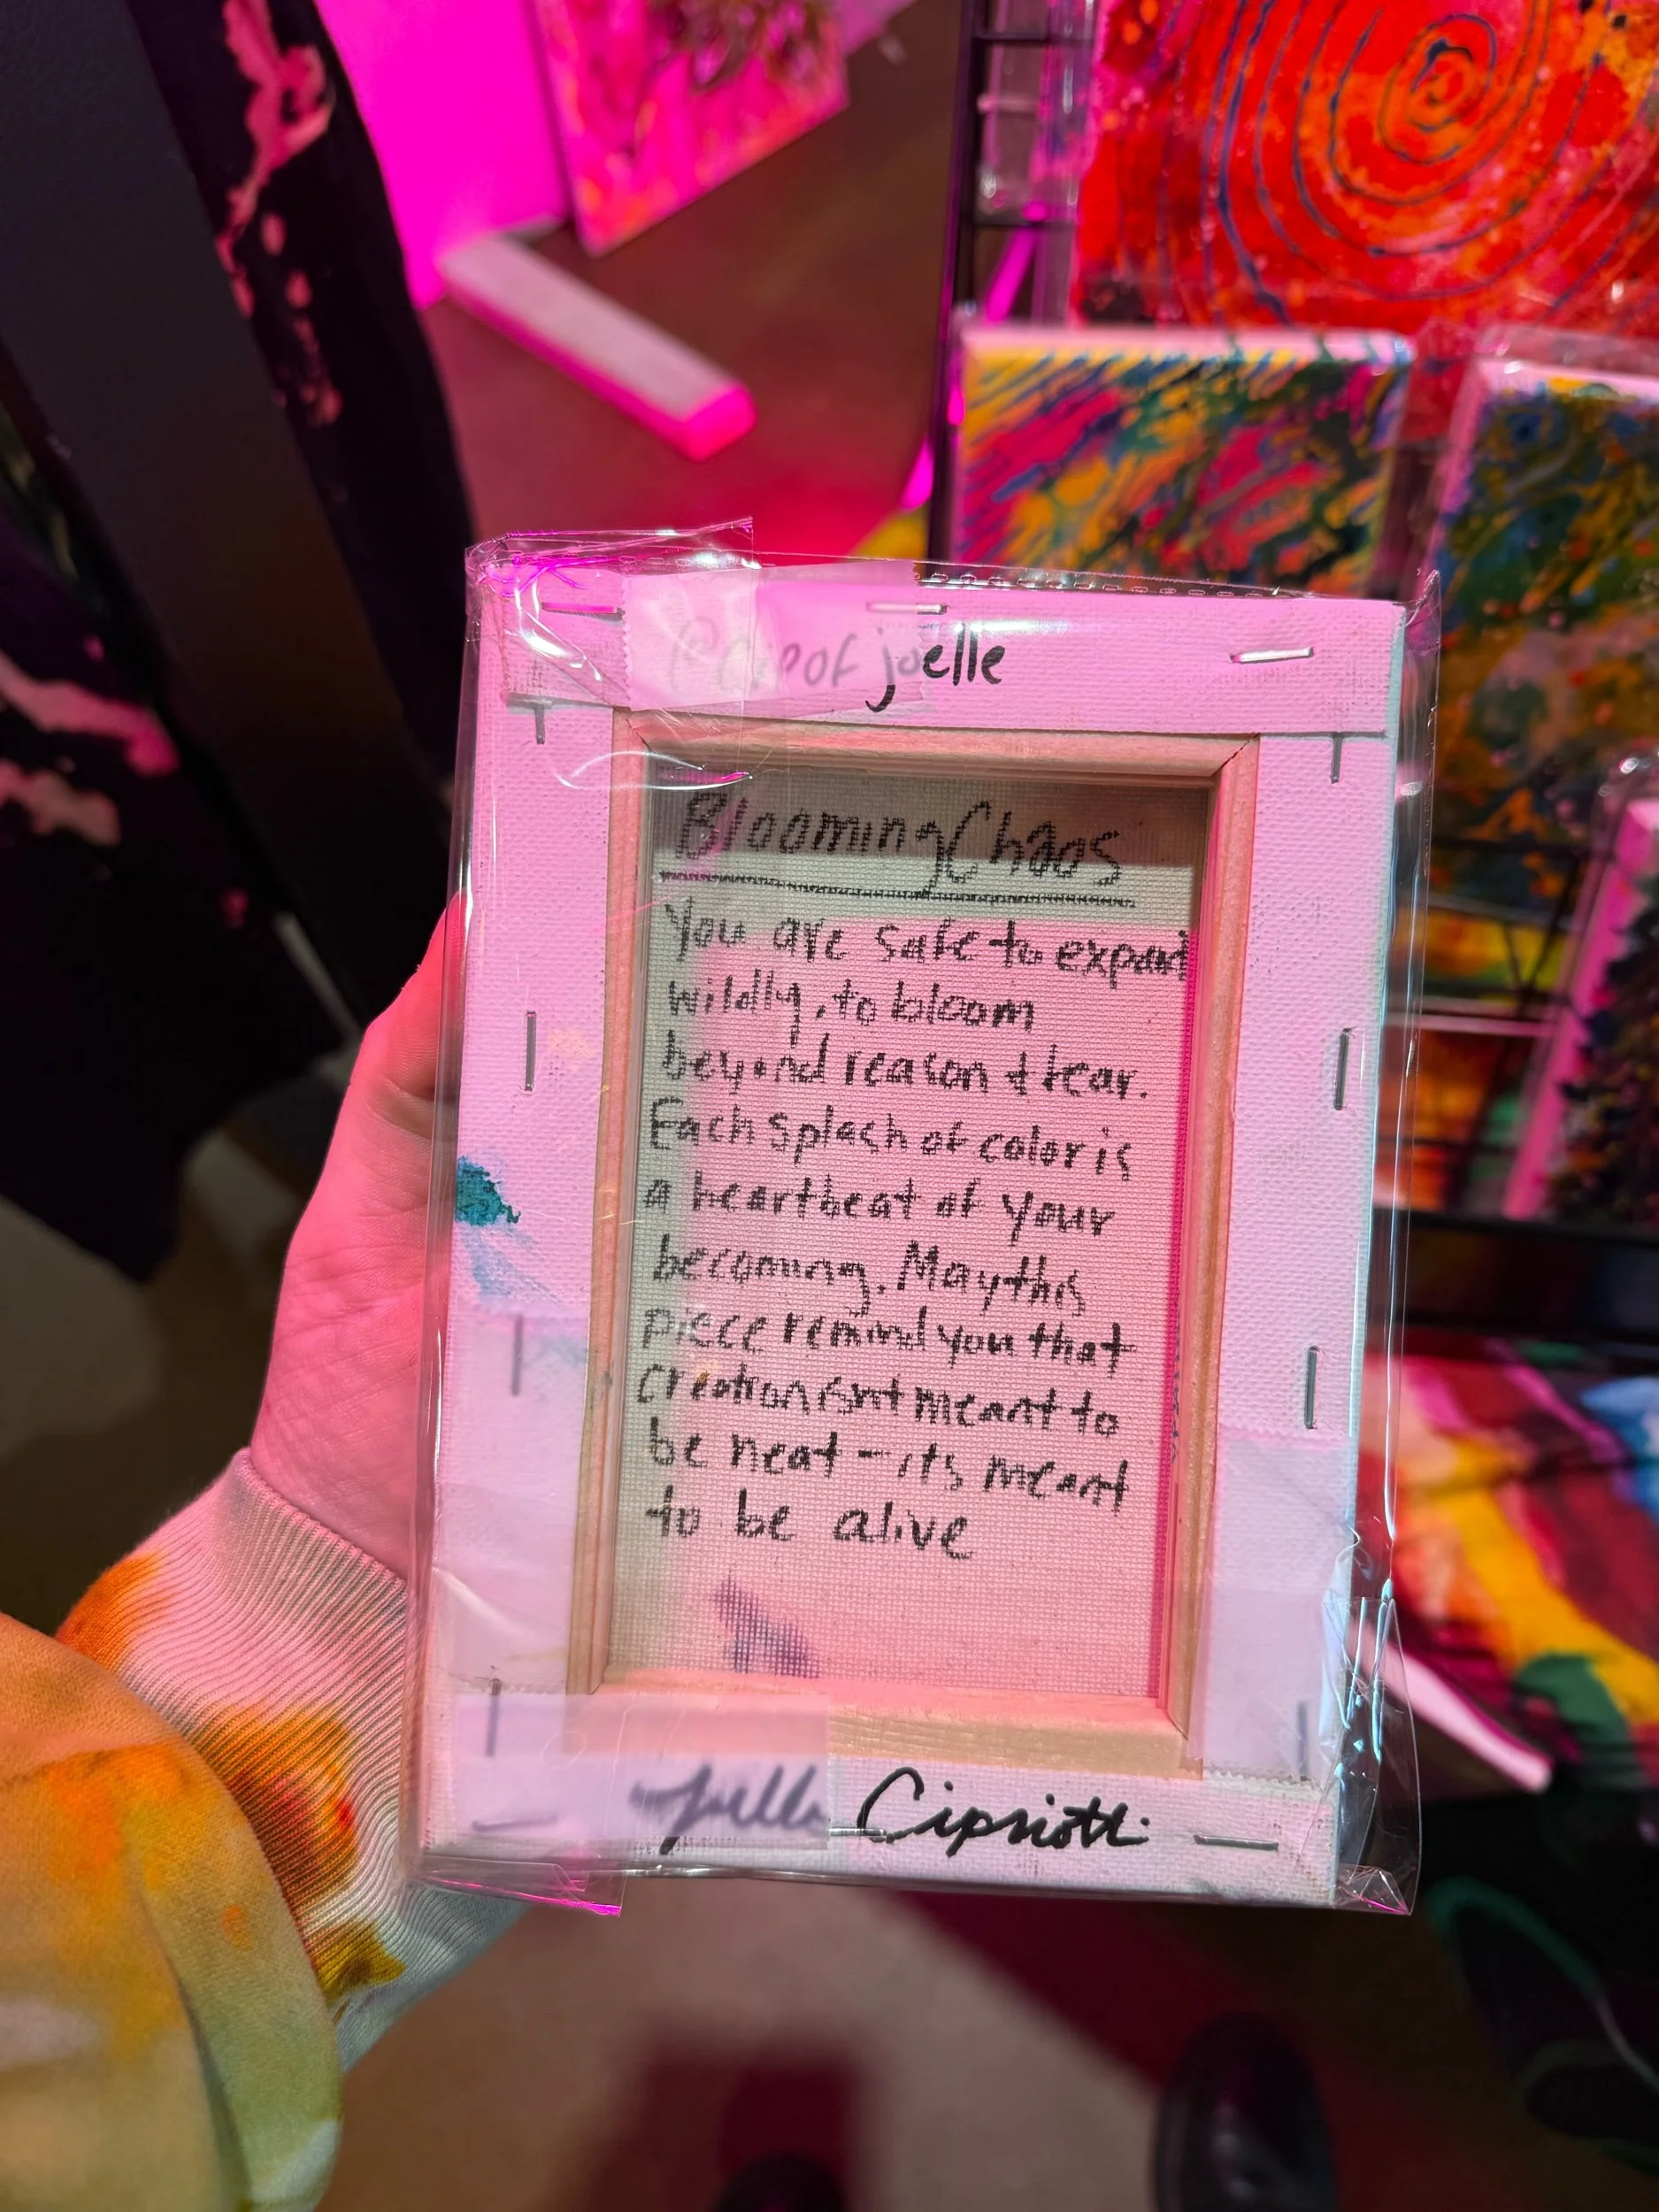 joelle
Blooming Chaos
You are safe to expand
wildly, to bloom
beyond reason + fear.
Each splash of color is
a heartbeat of your
becoming. May this
piece remind you that
creation isnt meant to
be neat - its meant
to be alive
Joelle Cipriotti